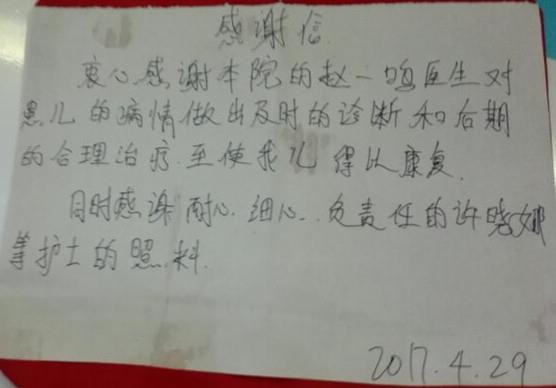 感谢信
衷心感谢本院的赵一鸣医生对
患儿的病情做出及时的诊断和后期
的合理治疗.至使我儿得以康复.
同时感谢耐心.细心.负责任的许晓娜
等护士的照料.
2017.4.29